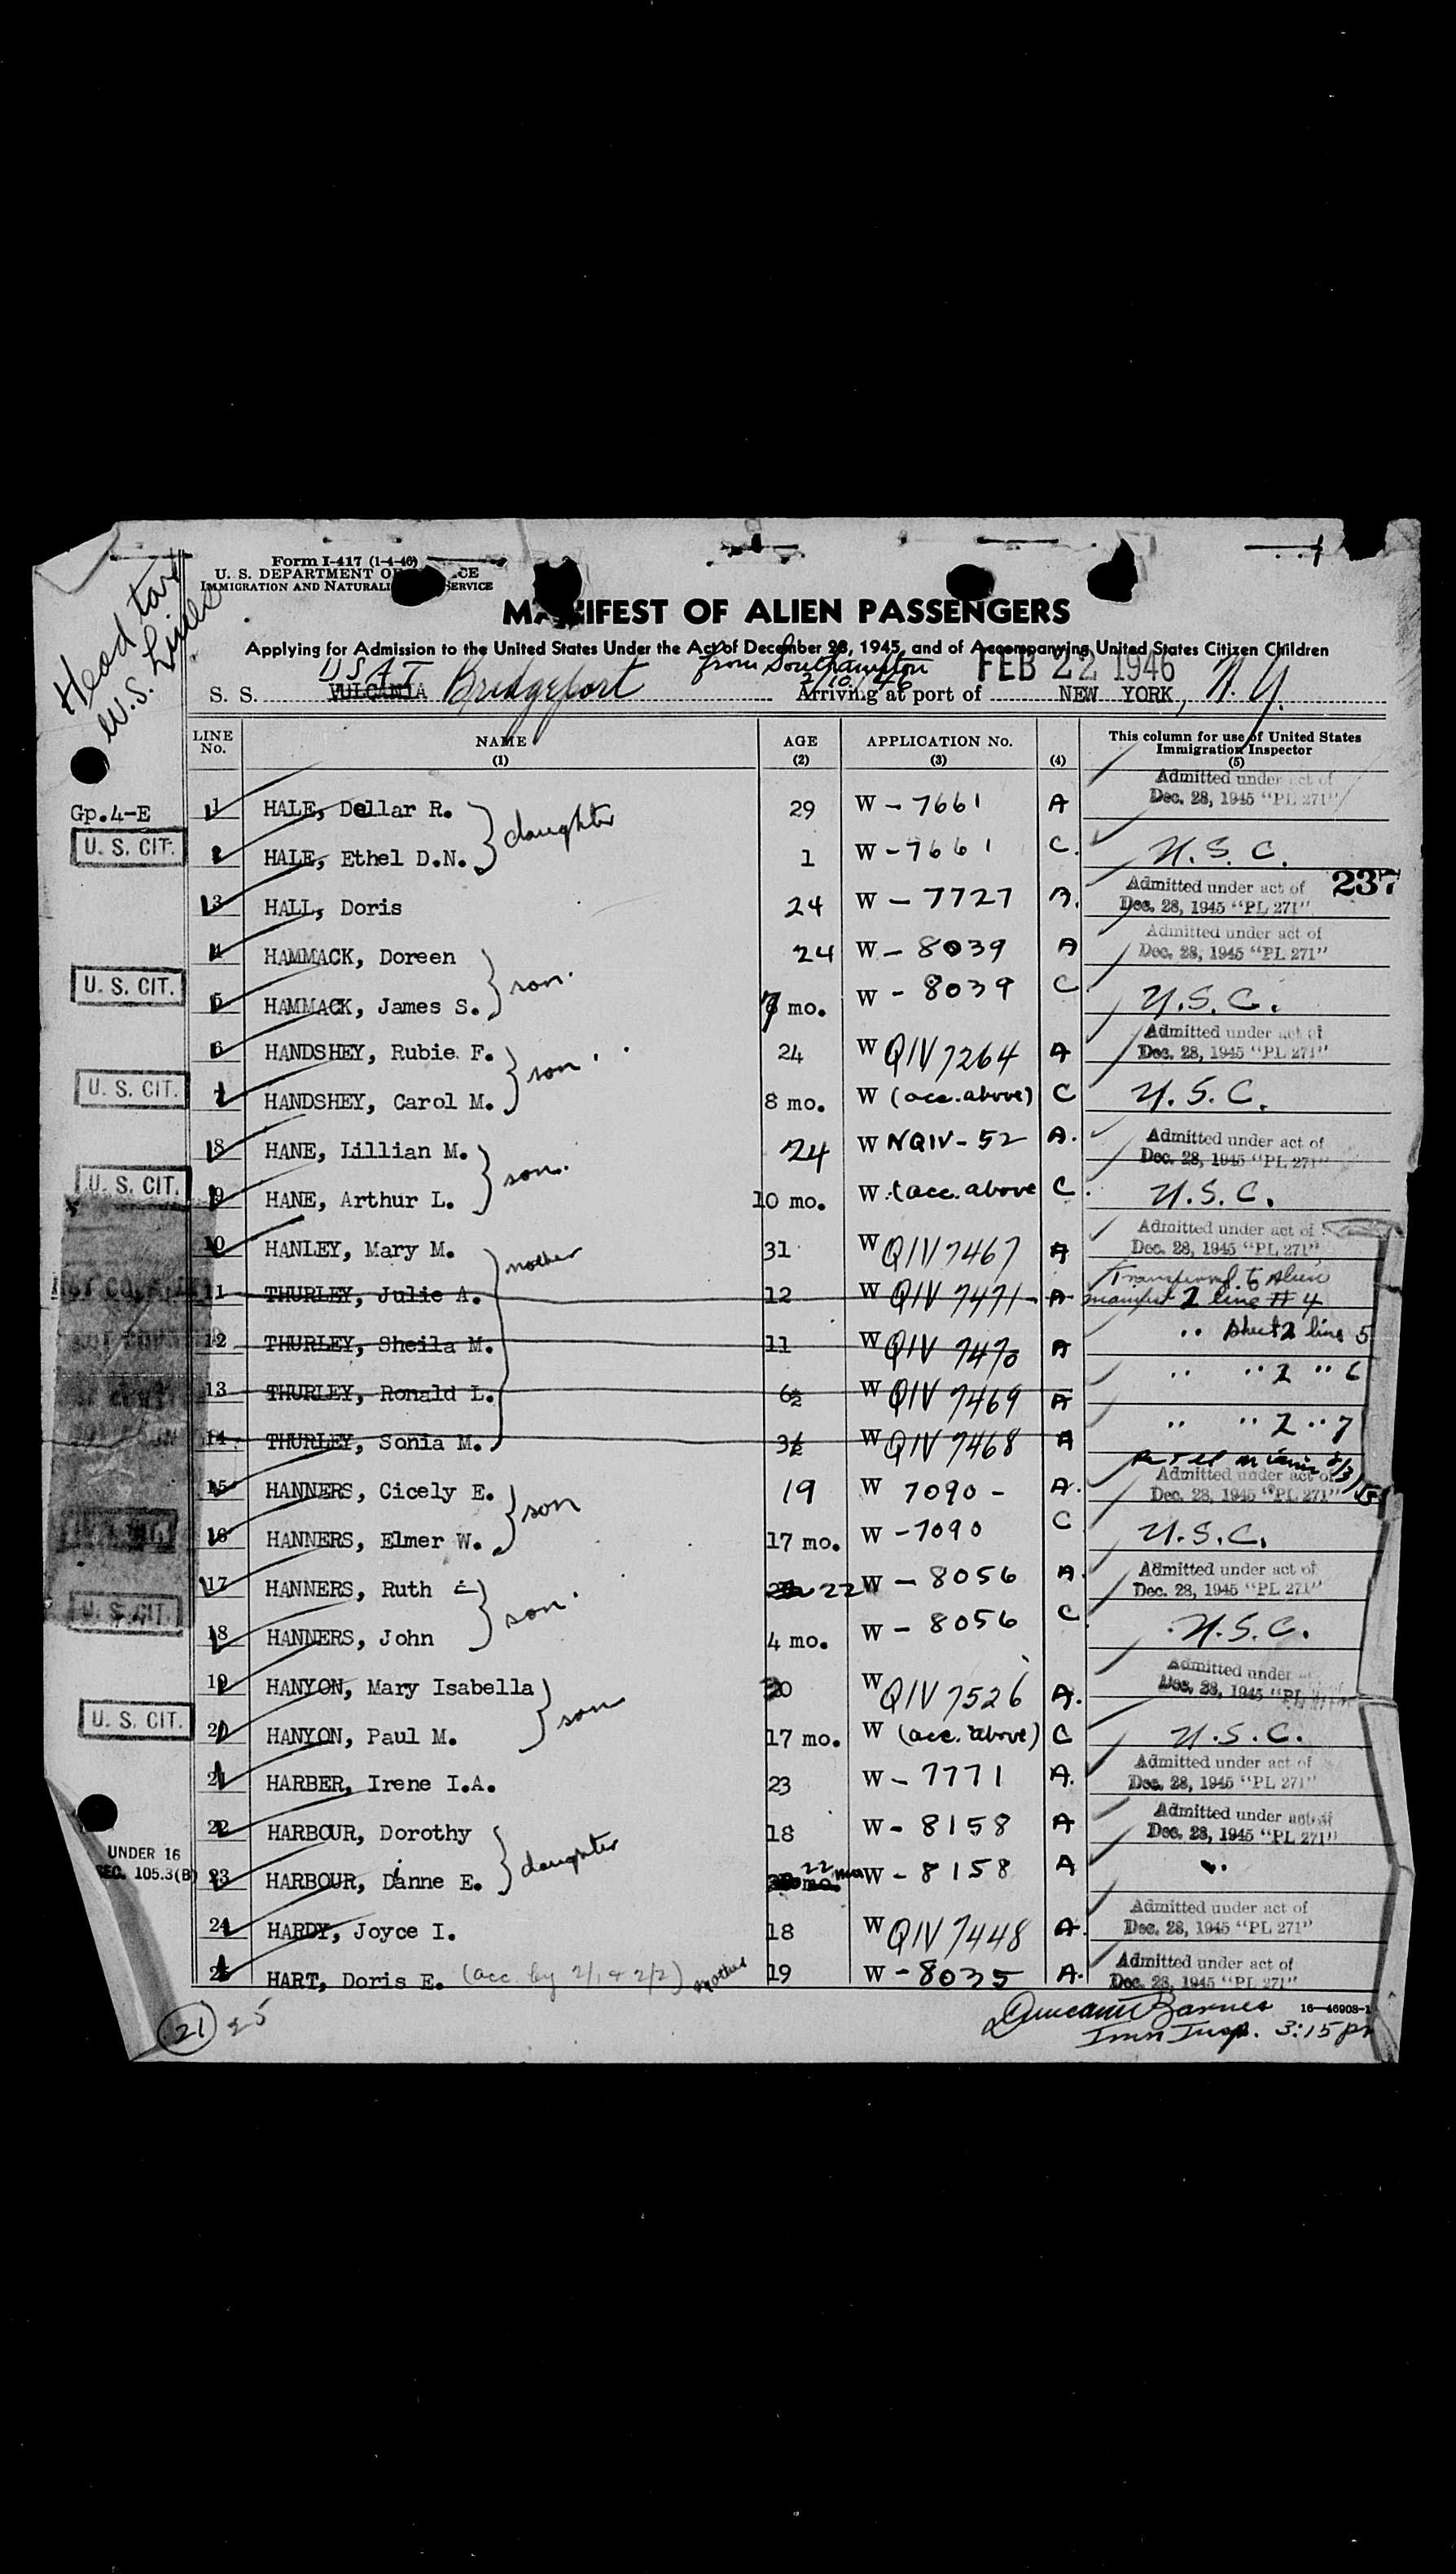 Head tax
U.S. Lines
Form I-417 (1-4-46)
U. S. DEPARTMENT OF CE
IMMIGRATION AND NATURALI SERVICE
MANIFEST OF ALIEN PASSENGERS
Applying for Admission to the United States Under the Act of December 28, 1945, and of Accompanying United States Citizen Children
USAT from Southampton FEB 22 1946
2/10/46
S. S. VULCANIA Bridgeport Arriving at port of NEW YORK, N.Y.
LINE No. NAME (1) AGE (2) APPLICATION No. (3) (4) This column for use of United States Immigration Inspector (5)
Gp.4-E
1 HALE, Dellar R. } daughter 29 W - 7661 A Admitted under act of Dec. 28, 1945 "PL 271"
U. S. CIT. 2 HALE, Ethel D.N. 1 W - 7661 C. U.S.C.
237
3 HALL, Doris 24 W - 7727 A. Admitted under act of Dec. 28, 1945 "PL 271"
4 HAMMACK, Doreen } son. 24 W - 8039 A Admitted under act of Dec. 28, 1945 "PL 271"
U. S. CIT. 5 HAMMACK, James S. 7 mo. W - 8039 C U.S.C.
6 HANDSHEY, Rubie F. } son. 24 W QIV 7264 A Admitted under act of Dec. 28, 1945 "PL 271"
U. S. CIT. 7 HANDSHEY, Carol M. 8 mo. W (acc. above) C U.S.C.
8 HANE, Lillian M. } son. 24 W NQIV - 52 A. Admitted under act of Dec. 28, 1945 "PL 271"
U. S. CIT. 9 HANE, Arthur L. 10 mo. W (acc. above C. U.S.C.
10 HANLEY, Mary M. } mother 31 W QIV 7467 A Admitted under act of Dec. 28, 1945 "PL 271"
11 THURLEY, Julie A. 12 W QIV 7471 - A Transferred to Alien manifest 2 line # 4
12 THURLEY, Sheila M. 11 W QIV 7470 A " sheet 2 line 5
13 THURLEY, Ronald L. 6½ W QIV 7469 A " " 2 " 6
14 THURLEY, Sonia M. 3½ W QIV 7468 A " " 2 " 7
15 HANNERS, Cicely E. } son 19 W 7090 - A. Admitted under act of Dec. 28, 1945 "PL 271"
16 HANNERS, Elmer W. 17 mo. W - 7090 C U.S.C.
17 HANNERS, Ruth } son. 22 W - 8056 A. Admitted under act of Dec. 28, 1945 "PL 271"
U. S. CIT. 18 HANNERS, John 4 mo. W - 8056 C U.S.C.
19 HANYON, Mary Isabella } son 30 W QIV 7526 A. Admitted under Dec. 28, 1945 "PL
U. S. CIT. 20 HANYON, Paul M. 17 mo. W (acc. above) C U.S.C.
21 HARBER, Irene I.A. 23 W - 7771 A. Admitted under act of Dec. 28, 1945 "PL 271"
22 HARBOUR, Dorothy } daughter 18 W - 8158 A Admitted under act of Dec. 28, 1945 "PL 271"
UNDER 16
SEC. 105.3(B) 23 HARBOUR, Dianne E. 22 mos W - 8158 A "
24 HARDY, Joyce I. 18 W QIV 7448 A. Admitted under act of Dec. 28, 1945 "PL 271"
25 HART, Doris E. (acc. by 2/1 & 2/2) mother 19 W - 8035 A. Admitted under act of Dec. 28, 1945 "PL 271"
21 25
Barnes 16—46908-1
Imm Insp. 3:15 pm